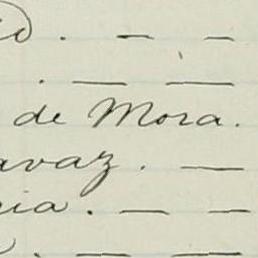 . — —
. — —
de Mora.
avaz. —
ia. — —
. — —